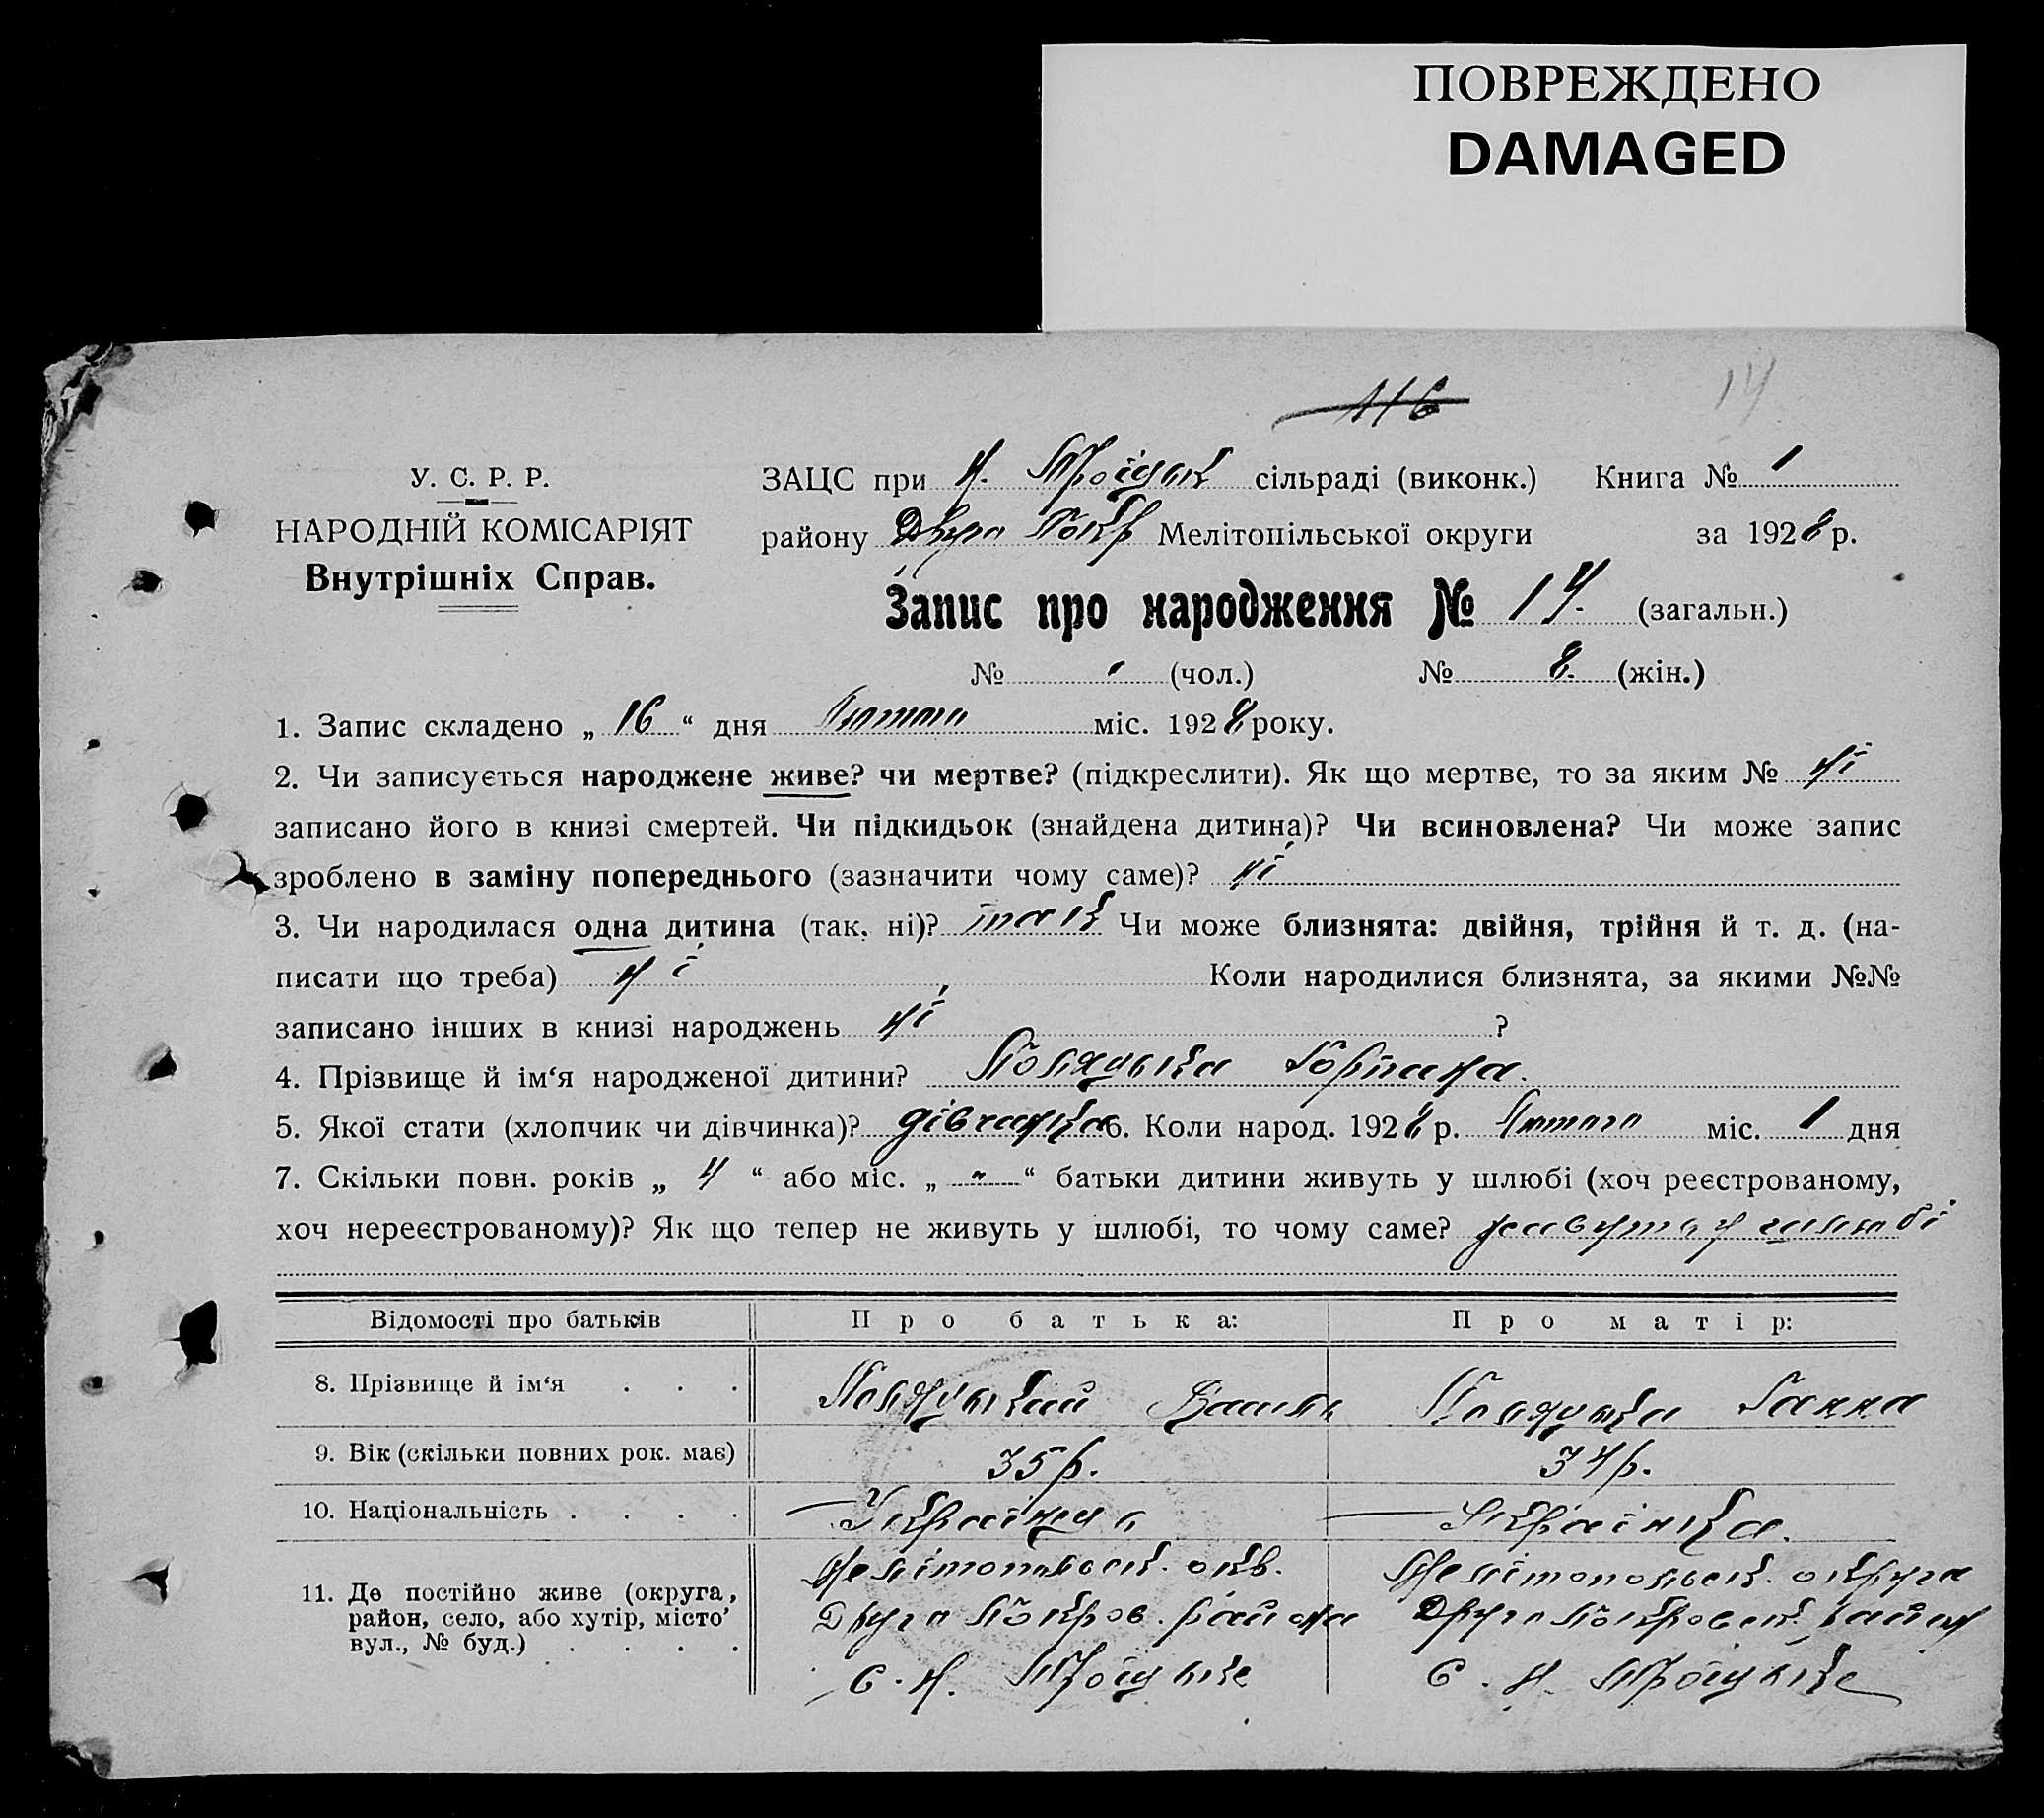 ПОВРЕЖДЕНО
DAMAGED
116
14
У. С. Р. Р.
НАРОДНІЙ КОМІСАРІЯТ
Внутрішніх Справ.
ЗАЦС при Н. Троіцьк сільраді (виконк.) Книга № 1
району Друго Покр Мелітопільської округи за 1928 р.
Запис про народження № 14. (загальн.)
№ (чол.) № 8. (жін.)
1. Запис складено „ 16 “ дня Лютого міс. 1928 року.
2. Чи записується народжене живе? чи мертве? (підкреслити). Як що мертве, то за яким № ні
записано його в книзі смертей. Чи підкидьок (знайдена дитина)? Чи всиновлена? Чи може запис
зроблено в заміну попереднього (зазначити чому саме)? ні
3. Чи народилася одна дитина (так, ні)? так Чи може близнята: двійня, трійня й т. д. (на-
писати що треба) ні Коли народилися близнята, за якими №№
записано інших в книзі народжень ні ?
4. Прізвище й ім‘я народженої дитини?
5. Якої стати (хлопчик чи дівчинка)? дівчинка 6. Коли народ. 1928 р. Лютого міс. 1 дня
7. Скільки повн. років „ 4 “ або міс. „ - “ батьки дитини живуть у шлюбі (хоч реєстрованому,
хоч нереєстрованому)? Як що тепер не живуть у шлюбі, то чому саме? живуть у шлюбі
Відомості про батьків Про батька: Про матір:
8. Прізвище й ім‘я . . . Василь Ганна
9. Вік (скільки повних рок. має) 35 р. 34 р.
10. Національність . . . . Українець Українка.
11. Де постійно живе (округа, район, село, або хутір, місто’ вул., № буд.) . . . .
Мелітопольск. окр. Друго Покров. района с. Н. Троіцьке
Мелітопольск. округа Друго Покровск. район с. Н. Троіцьке